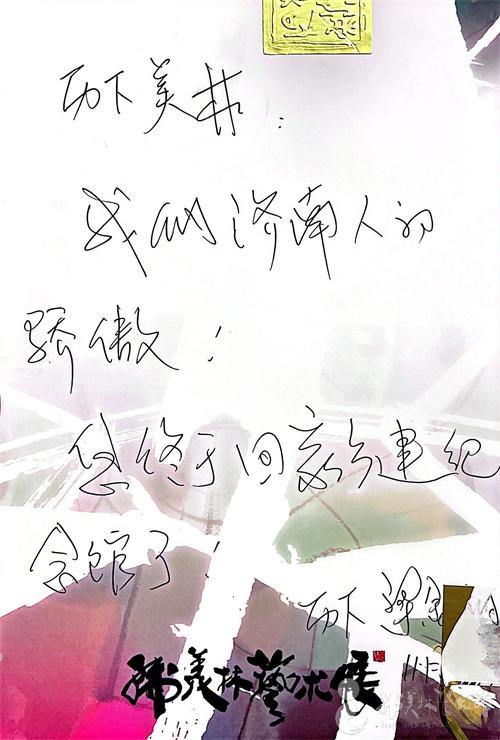 历下美林：
我们济南人的
骄傲！
您终于回家乡建纪
念馆了！
历下
韩美林艺术展